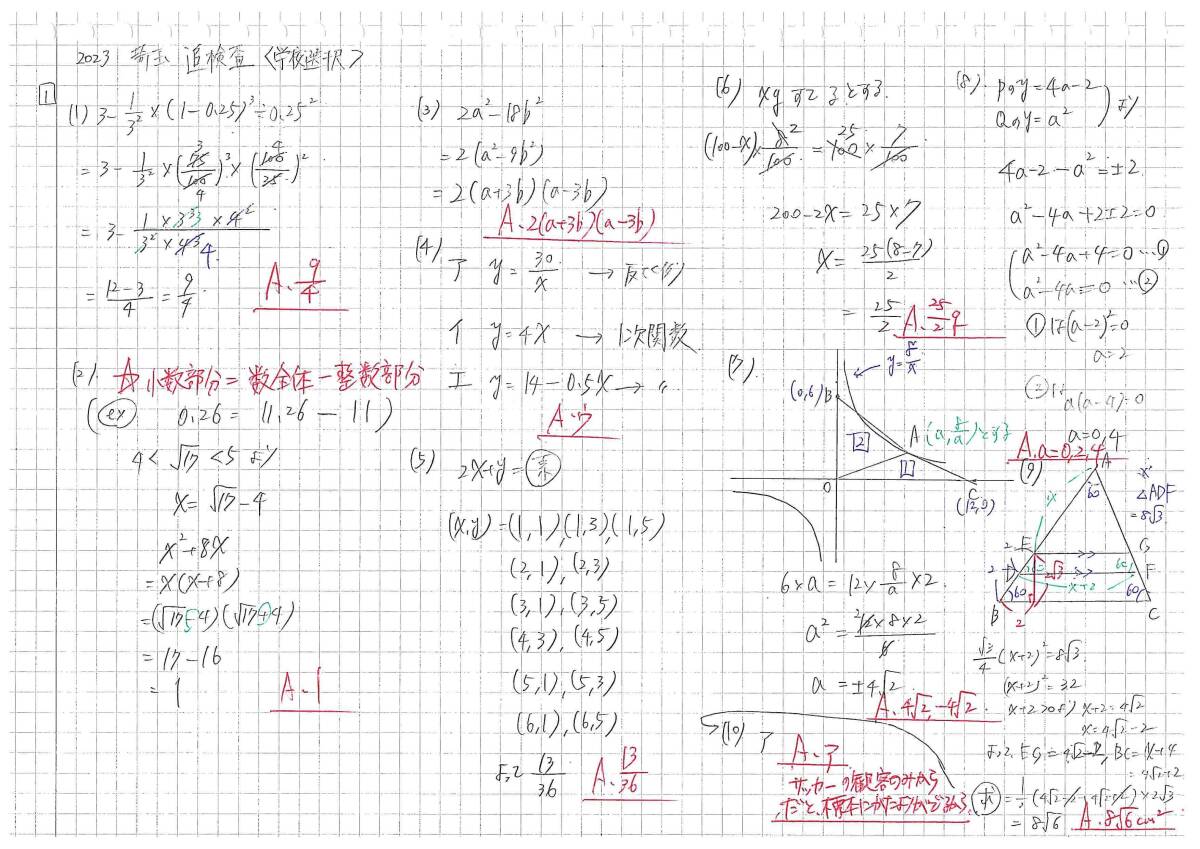 2023 埼玉 追検査〈学校選択〉
1
(1) 3 - 1/3² × (1 - 0.25)³ ÷ 0.25²
= 3 - 1/3² × (75/100)³ × (100/25)²
3 4
4
= 3 - (1 × 3³ × 4²)/(3² × 4³)
4
= (12-3)/4 = 9/4
A. 9/4
(2). ☆ 小数部分 = 数全体 - 整数部分
(ex 0.26 = 11.26 - 11)
4 < √17 < 5 より
x = √17 - 4
x² + 8x
= x(x+8)
= (√17-4)(√17+4)
= 17 - 16
= 1
A. 1
(3) 2a² - 18b²
= 2(a² - 9b²)
= 2(a+3b)(a-3b)
A. 2(a+3b)(a-3b)
(4)
ア y = 30/x → 反比例
イ y = 4x → 1次関数
エ y = 14 - 0.5x → 〃
A. ウ
(5) 2x+y = 素
(x,y) = (1,1),(1,3)(1,5)
(2,1),(2,3)
(3,1),(3,5)
(4,3),(4,5)
(5,1),(5,3)
(6,1),(6,5)
よって 13/36
A. 13/36
(6) xg すてるとする.
(100-x) × 2/100 = 100 × 7/100
25
200 - 2x = 25 × 7
x = 25(8-7)/2
= 25/2
A. 25/2 g
(7).
y = 8/x
(0,6) B
A (a, 8/a) とする
2
1
O
C
(12,0)
6 × a = 12 × 8/a × 2
a² = (12 × 8 × 2)/6
2
a = ±4√2
A. 4√2, -4√2
(8). Pのy = 4a-2
Qのy = a²
より
4a - 2 - a² = ±2
a² - 4a + 2 ± 2 = 0
a² - 4a + 4 = 0 … ①
a² - 4a = 0 … ②
①は (a-2)² = 0
a = 2
②は
a(a-4) = 0
a = 0, 4
A. a = 0, 2, 4
(9)
A
60
x
△ADF
= 8√3
2 E G
2 D F
2√3
x+2
60 60
B C
2
√3/4 (x+2)² = 8√3
(x+2)² = 32
x+2>0より x+2 = 4√2
x = 4√2 - 2
よって EG = 4√2-2, BC = x+4
= 4√2+2
求 = 1/2 (4√2-2+4√2+2) × 2√3
= 8√6
A. 8√6 cm²
(10) ア
A. ア
サッカーの観客のみから
だと、標本にかたよりがでるから